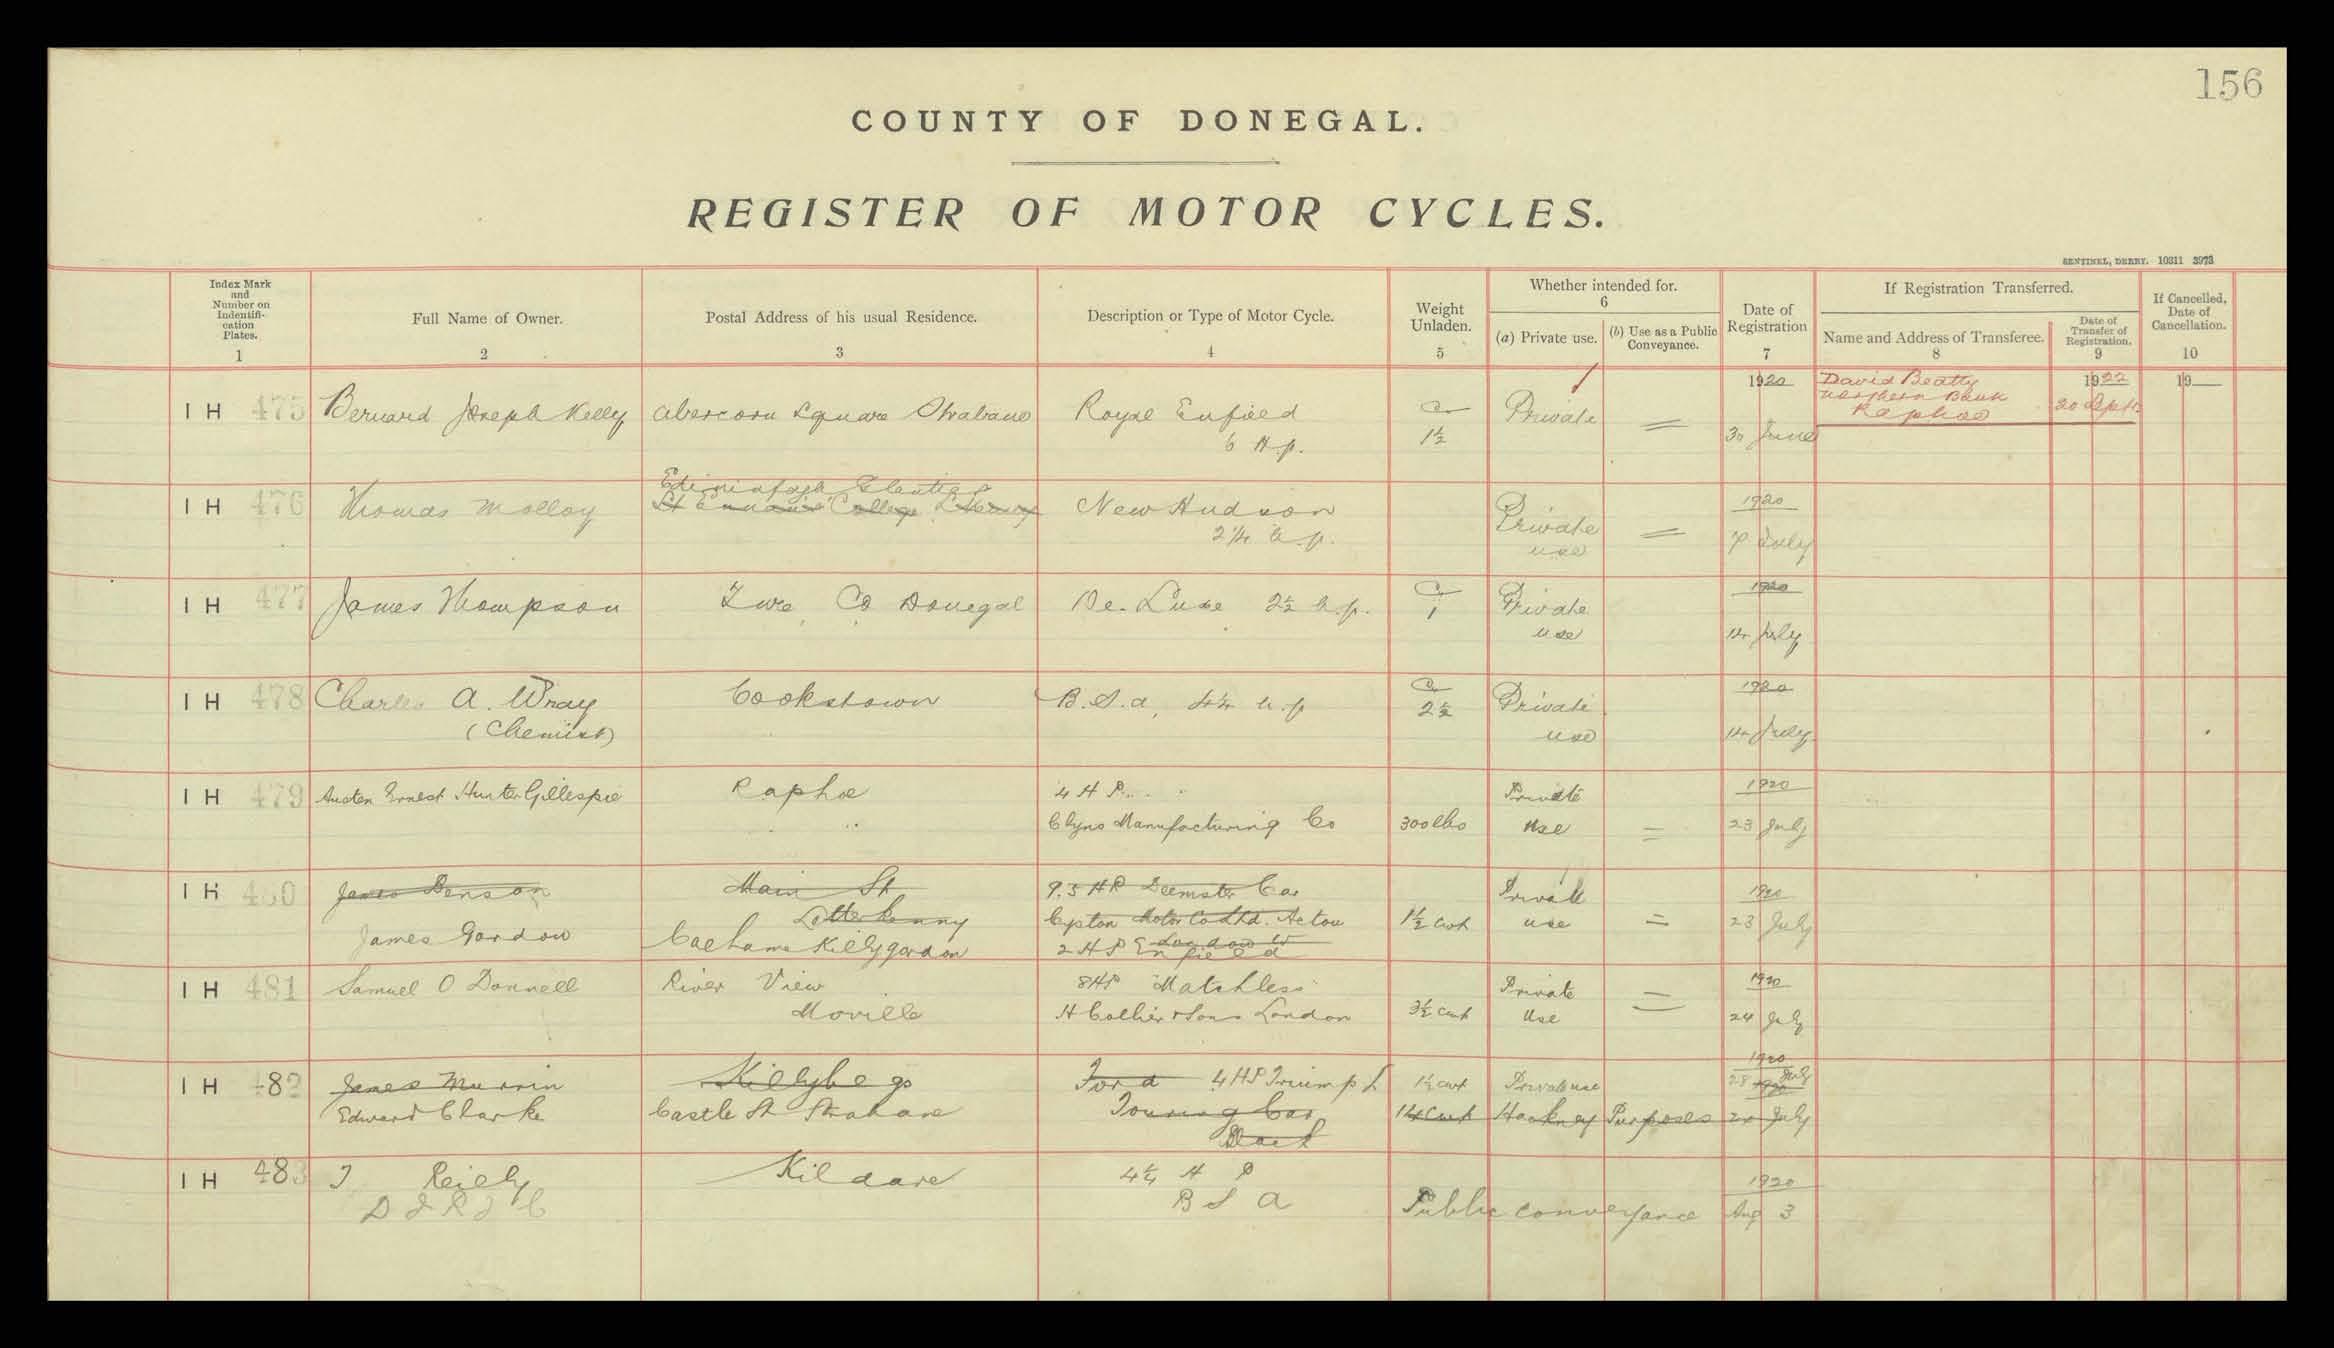 156
COUNTY OF DONEGAL.
REGISTER OF MOTOR CYCLES.
SENTINEL, DERRY. 10311 3973
Index Mark and Number on Indentifi-cation Plates. 1
Full Name of Owner. 2
Postal Address of his usual Residence. 3
Description or Type of Motor Cycle. 4
Weight Unladen. 5
Whether intended for. 6
(a) Private use.
(b) Use as a Public Conveyance.
Date of Registration 7
If Registration Transferred.
Name and Address of Transferee. 8
Date of Transfer of Registration. 9
If Cancelled, Date of Cancellation. 10
1920 David Beatty 1922 19
Northern Bank
I H 475 Bernard Joseph Kelly Abercorn Square Strabane Royal Enfield C. Private = Raphoe 20 Sept
6 H.p. 1½ 30 June
Glenties
I H 476 Thomas Molloy St Eunan's College L'Kenny New Hudson Private 1920
2¼ h.p. use = 7 July
I H 477 James Thompson Co Donegal De-Luxe 2½ h.p. C. 1 Private 1920
use 14 July
I H 478 Charles A. Wray Cookstown B.S.A. 4¼ h.p C. 2½ Private 1920
(Chemist) use 14 July
I H 479 Austen Ernest Hunter Gillespie Raphoe 4 H P. Private 1920
Clyno Manufacturing Co 300 lbs Use = 23 July
I H 480 James Benson Main St 9.5 HP Deemster Car Private 1920
Letterkenny Motor Co Ltd. Acton 1½ cwt use = 23 July
James Gordon Killygordon 2 HP Enfield London W
I H 481 Samuel O Donnell River View 8HP Matchless Private = 1920
Moville H Collier & Sons London 3½ cwt Use 24 July
1920
I H 482 James Murrin Killybegs Ford 4HP Triumph 1½ cwt Private use 28 July 1920
Edward Clarke Castle St Strabane Touring Car 14 cwt Hackney Purposes July
Black
I H 483 J Reiely Kildare 4¼ H P 1920
D I R I C B S A Public conveyance Aug 3